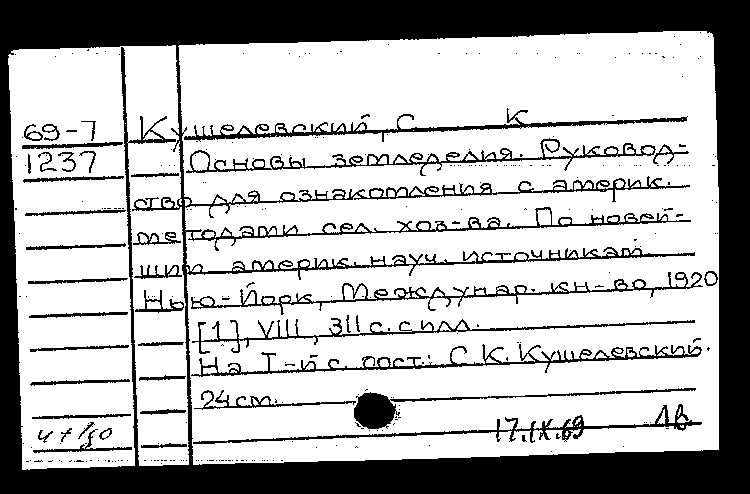 69-7 Кушелевский, С К
1237 Основы земледелия. Руковод-
ство для ознакомления с америк.
методами сел. хоз-ва. По новей-
шим америк. науч. источникам.
Нью-Йорк, Междунар. кн-во, 1920
[1], VIII, 311 с. с илл.
На 1-й с. авт.: С К. Кушелевский.
24 см.
17.IX.69 1в